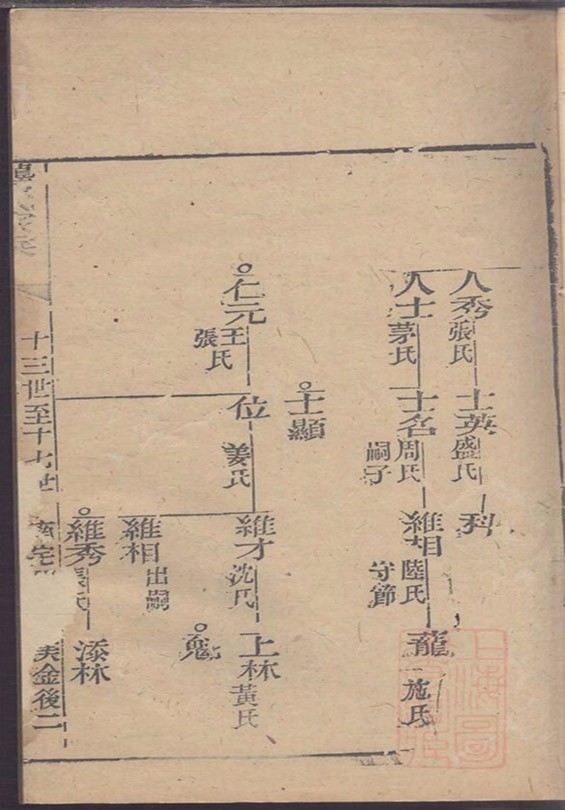 人秀 張氏
士英 盛氏
科
人士 茅氏
士名 周氏 嗣子
維相 陸氏 守節
龍 施氏
士顯
仁元 王氏 張氏
位 姜氏
維才 沈氏
上林 黃氏
維相 出嗣
維秀
添林
十三世至十七世
宅
金後二
上海圖